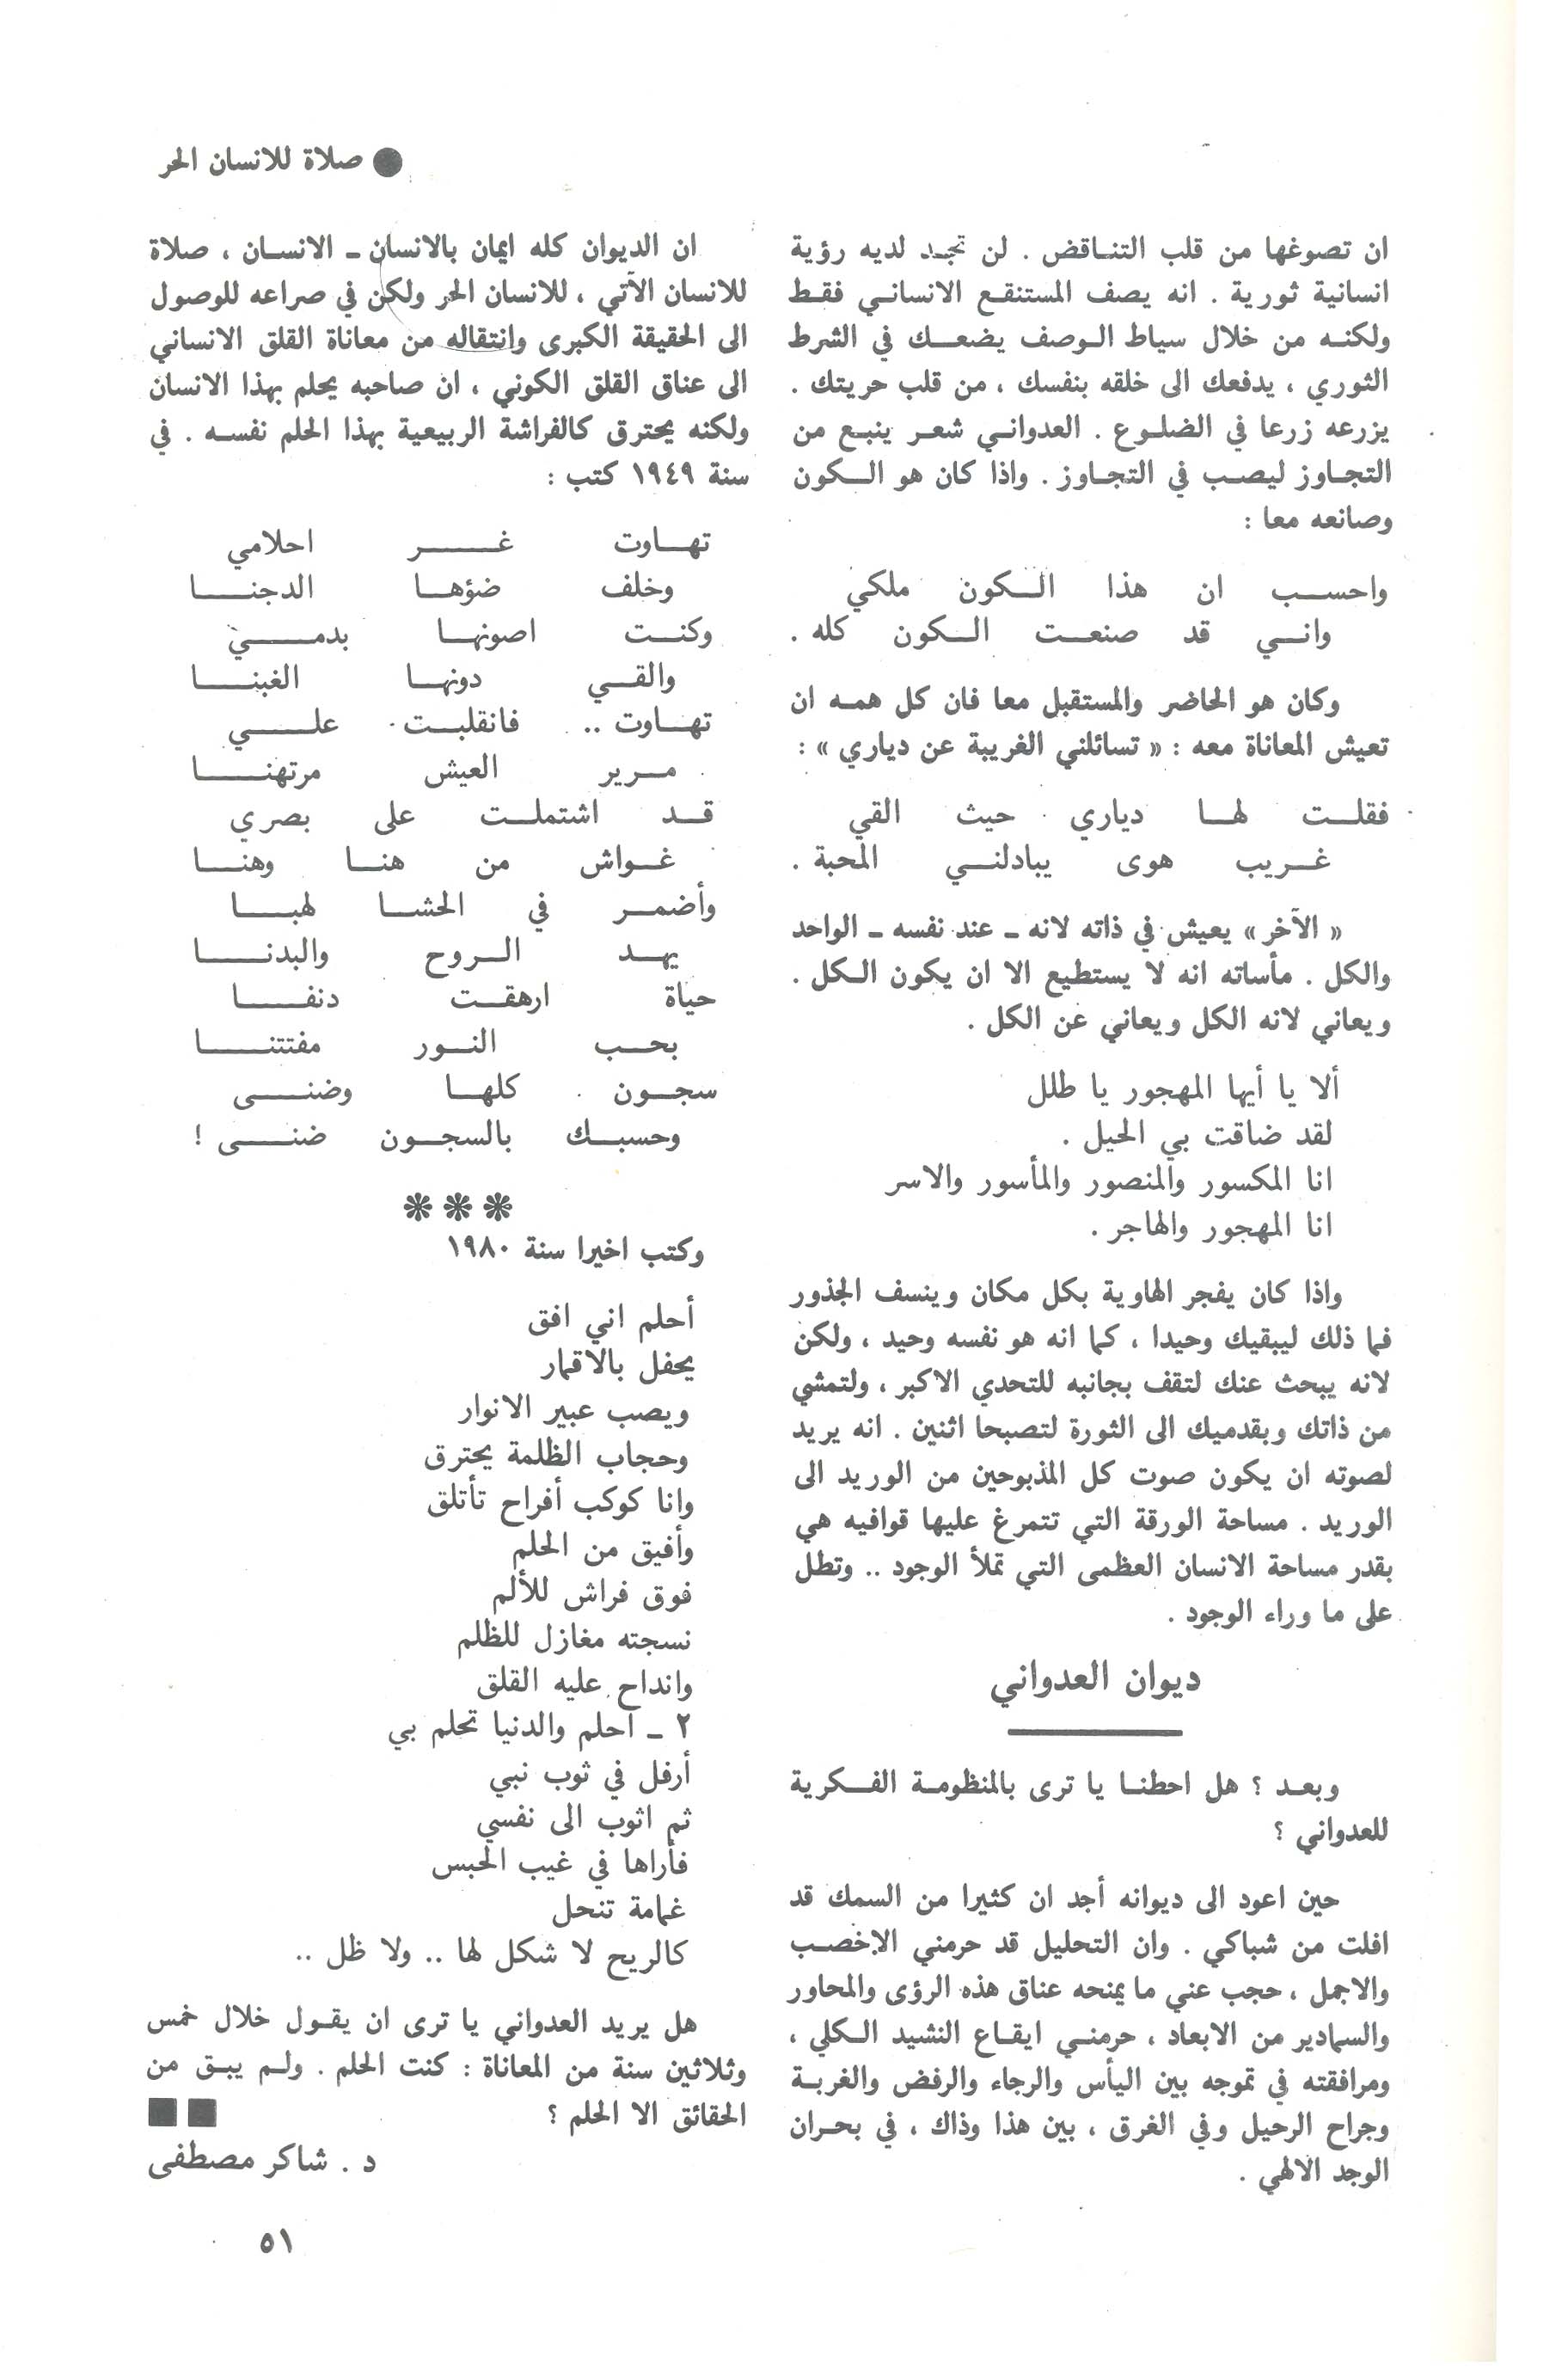 ● صلاة للانسان الحر
ان تصوغها من قلب التناقض . لن تجد لديه رؤية
انسانية ثورية . انه يصف المستنقع الانساني فقط
ولكنه من خلال سياط الوصف يضعك في الشرط
الثوري ، يدفعك الى خلقه بنفسك ، من قلب حريتك .
يزرعه زرعا في الضلوع . العدواني شعر ينبع من
التجاوز ليصب في التجاوز . واذا كان هو الكون
وصانعه معا :
واحسب ان هذا الكون ملكي
واني قد صنعت الكون كله .
وكان هو الحاضر والمستقبل معا فان كل همه ان
تعيش المعاناة معه : « تسائلني الغريبة عن دياري » :
فقلت لها دياري حيث القي
غريب هوى يبادلني المحبة .
« الآخر » يعيش في ذاته لانه ـ عند نفسه ـ الواحد
والكل . مأساته انه لا يستطيع الا ان يكون الكل .
ويعاني لانه الكل ويعاني عن الكل .
ألا يا أيها المهجور يا طلل
لقد ضاقت بي الحيل .
انا المكسور والمنصور والمأسور والاسر
انا المهجور والهاجر .
واذا كان يفجر الهاوية بكل مكان وينسف الجذور
فما ذلك ليبقيك وحيدا ، كما انه هو نفسه وحيد ، ولكن
لانه يبحث عنك لتقف بجانبه للتحدي الاكبر ، ولتمشي
من ذاتك وبقدميك الى الثورة لتصبحا اثنين . انه يريد
لصوته ان يكون صوت كل المذبوحين من الوريد الى
الوريد . مساحة الورقة التي تتمرغ عليها قوافيه هي
بقدر مساحة الانسان العظمى التي تملأ الوجود .. وتطل
على ما وراء الوجود .
ديوان العدواني
وبعد ؟ هل احطنا يا ترى بالمنظومة الفكرية
للعدواني ؟
حين اعود الى ديوانه أجد ان كثيرا من السمك قد
افلت من شباكي . وان التحليل قد حرمني الاخصب
والاجمل ، حجب عني ما يمنحه عناق هذه الرؤى والمحاور
والسمادير من الابعاد ، حرمني ايقاع النشيد الكلي ،
ومرافقته في تموجه بين اليأس والرجاء والرفض والغربة
وجراح الرحيل وفي الغرق ، بين هذا وذاك ، في بحران
الوجد الالهي .
ان الديوان كله ايمان بالانسان ـ الانسان ، صلاة
للانسان الآتي ، للانسان الحر ولكن في صراعه للوصول
الى الحقيقة الكبرى وانتقاله من معاناة القلق الانساني
الى عناق القلق الكوني ، ان صاحبه يحلم بهذا الانسان
ولكنه يحترق كالفراشة الربيعية بهذا الحلم نفسه . في
سنة ١٩٤٩ كتب :
تهاوت غر احلامي
وخلف ضؤها الدجنا
وكنت اصونها بدمي
والقي دونها الغبنا
تهاوت .. فانقلبت علي
مرير العيش مرتهنا
قد اشتملت على بصري
غواش من هنا وهنا
وأضمر في الحشا لهبا
يهد الروح والبدنا
حياة ارهقت دنفا
بحب النور مفتتنا
سجون كلها وضنى
وحسبك بالسجون ضنى !
❋ ❋ ❋
وكتب اخيرا سنة ١٩٨٠
أحلم اني افق
يحفل بالاقمار
ويصب عبير الانوار
وحجاب الظلمة يحترق
وانا كوكب أفراح تأتلق
وأفيق من الحلم
فوق فراش للألم
نسجته مغازل للظلم
وانداح عليه القلق
٢ ـ احلم والدنيا تحلم بي
أرفل في ثوب نبي
ثم اثوب الى نفسي
فأراها في غيب الحبس
غمامة تنحل
كالريح لا شكل لها .. ولا ظل ..
هل يريد العدواني يا ترى ان يقول خلال خمس
وثلاثين سنة من المعاناة : كنت الحلم . ولم يبق من
الحقائق الا الحلم ؟ ■ ■
د . شاكر مصطفى
٥١